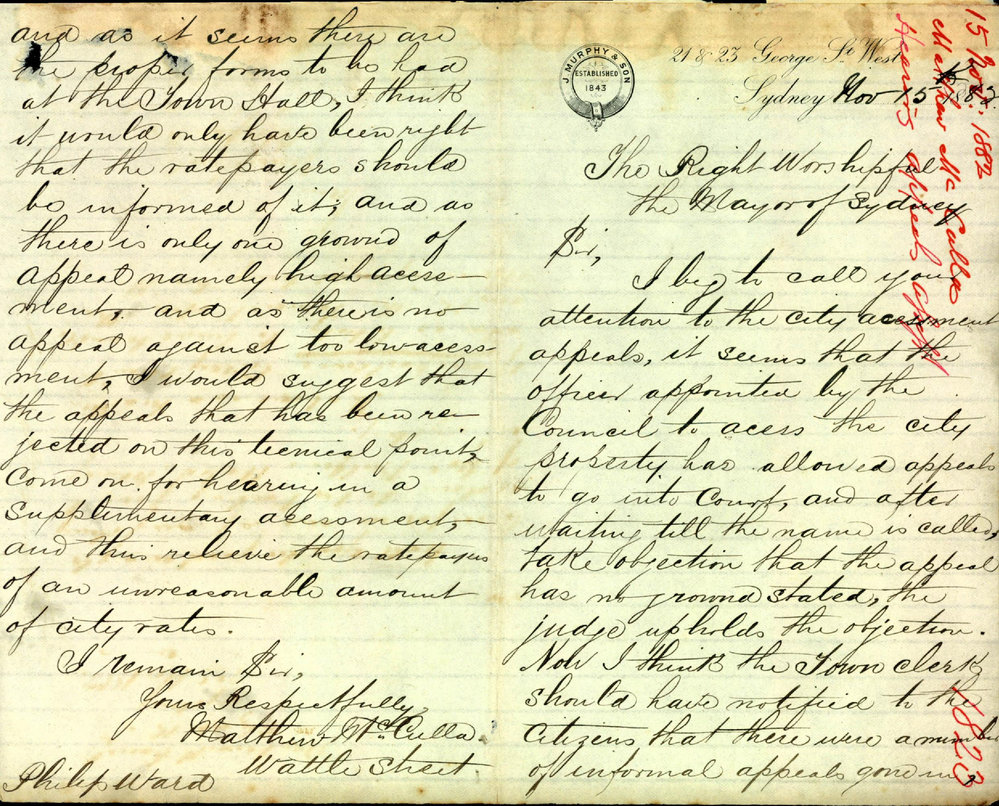 J. MURPHY & SON
ESTABLISHED
1843
21 & 23 George St. West
Sydney Nov 15 1882.
The Right Worshipful
the Mayor of Sydney
Sir,
I beg to call your
attention to the city acessment
appeals, it seems that the
officer appointed by the
Council to acess the city
property has allowed appeals
to go into Court, and after
waiting till the name is called,
take objection that the appeal
has no ground stated, the
judge upholds the objection.
Now I think the Town clerk
should have notified to the
Citizens that there were a number
of informal appeals gone in,
and as it seems there are
the proper forms to be had
at the Town Hall, I think
it would only have been right
that the ratepayers should
be informed of it; and as
there is only one ground of
appeal namely high acess-
ment, and as there is no
appeal against too low acess-
ment, I would suggest that
the appeals that has been re-
jected on this tecnical point,
Come on for hearing in a
Supplimentary acessment,
and thus relieve the ratepayers
of an unreasonable amount
of city rates.
I remain Sir,
Yours Respectfully
Matthew McCulla
Wattle Street
Philip Ward
15 Nov. 1882
Mathew McCulla
Hearing appeals
1823